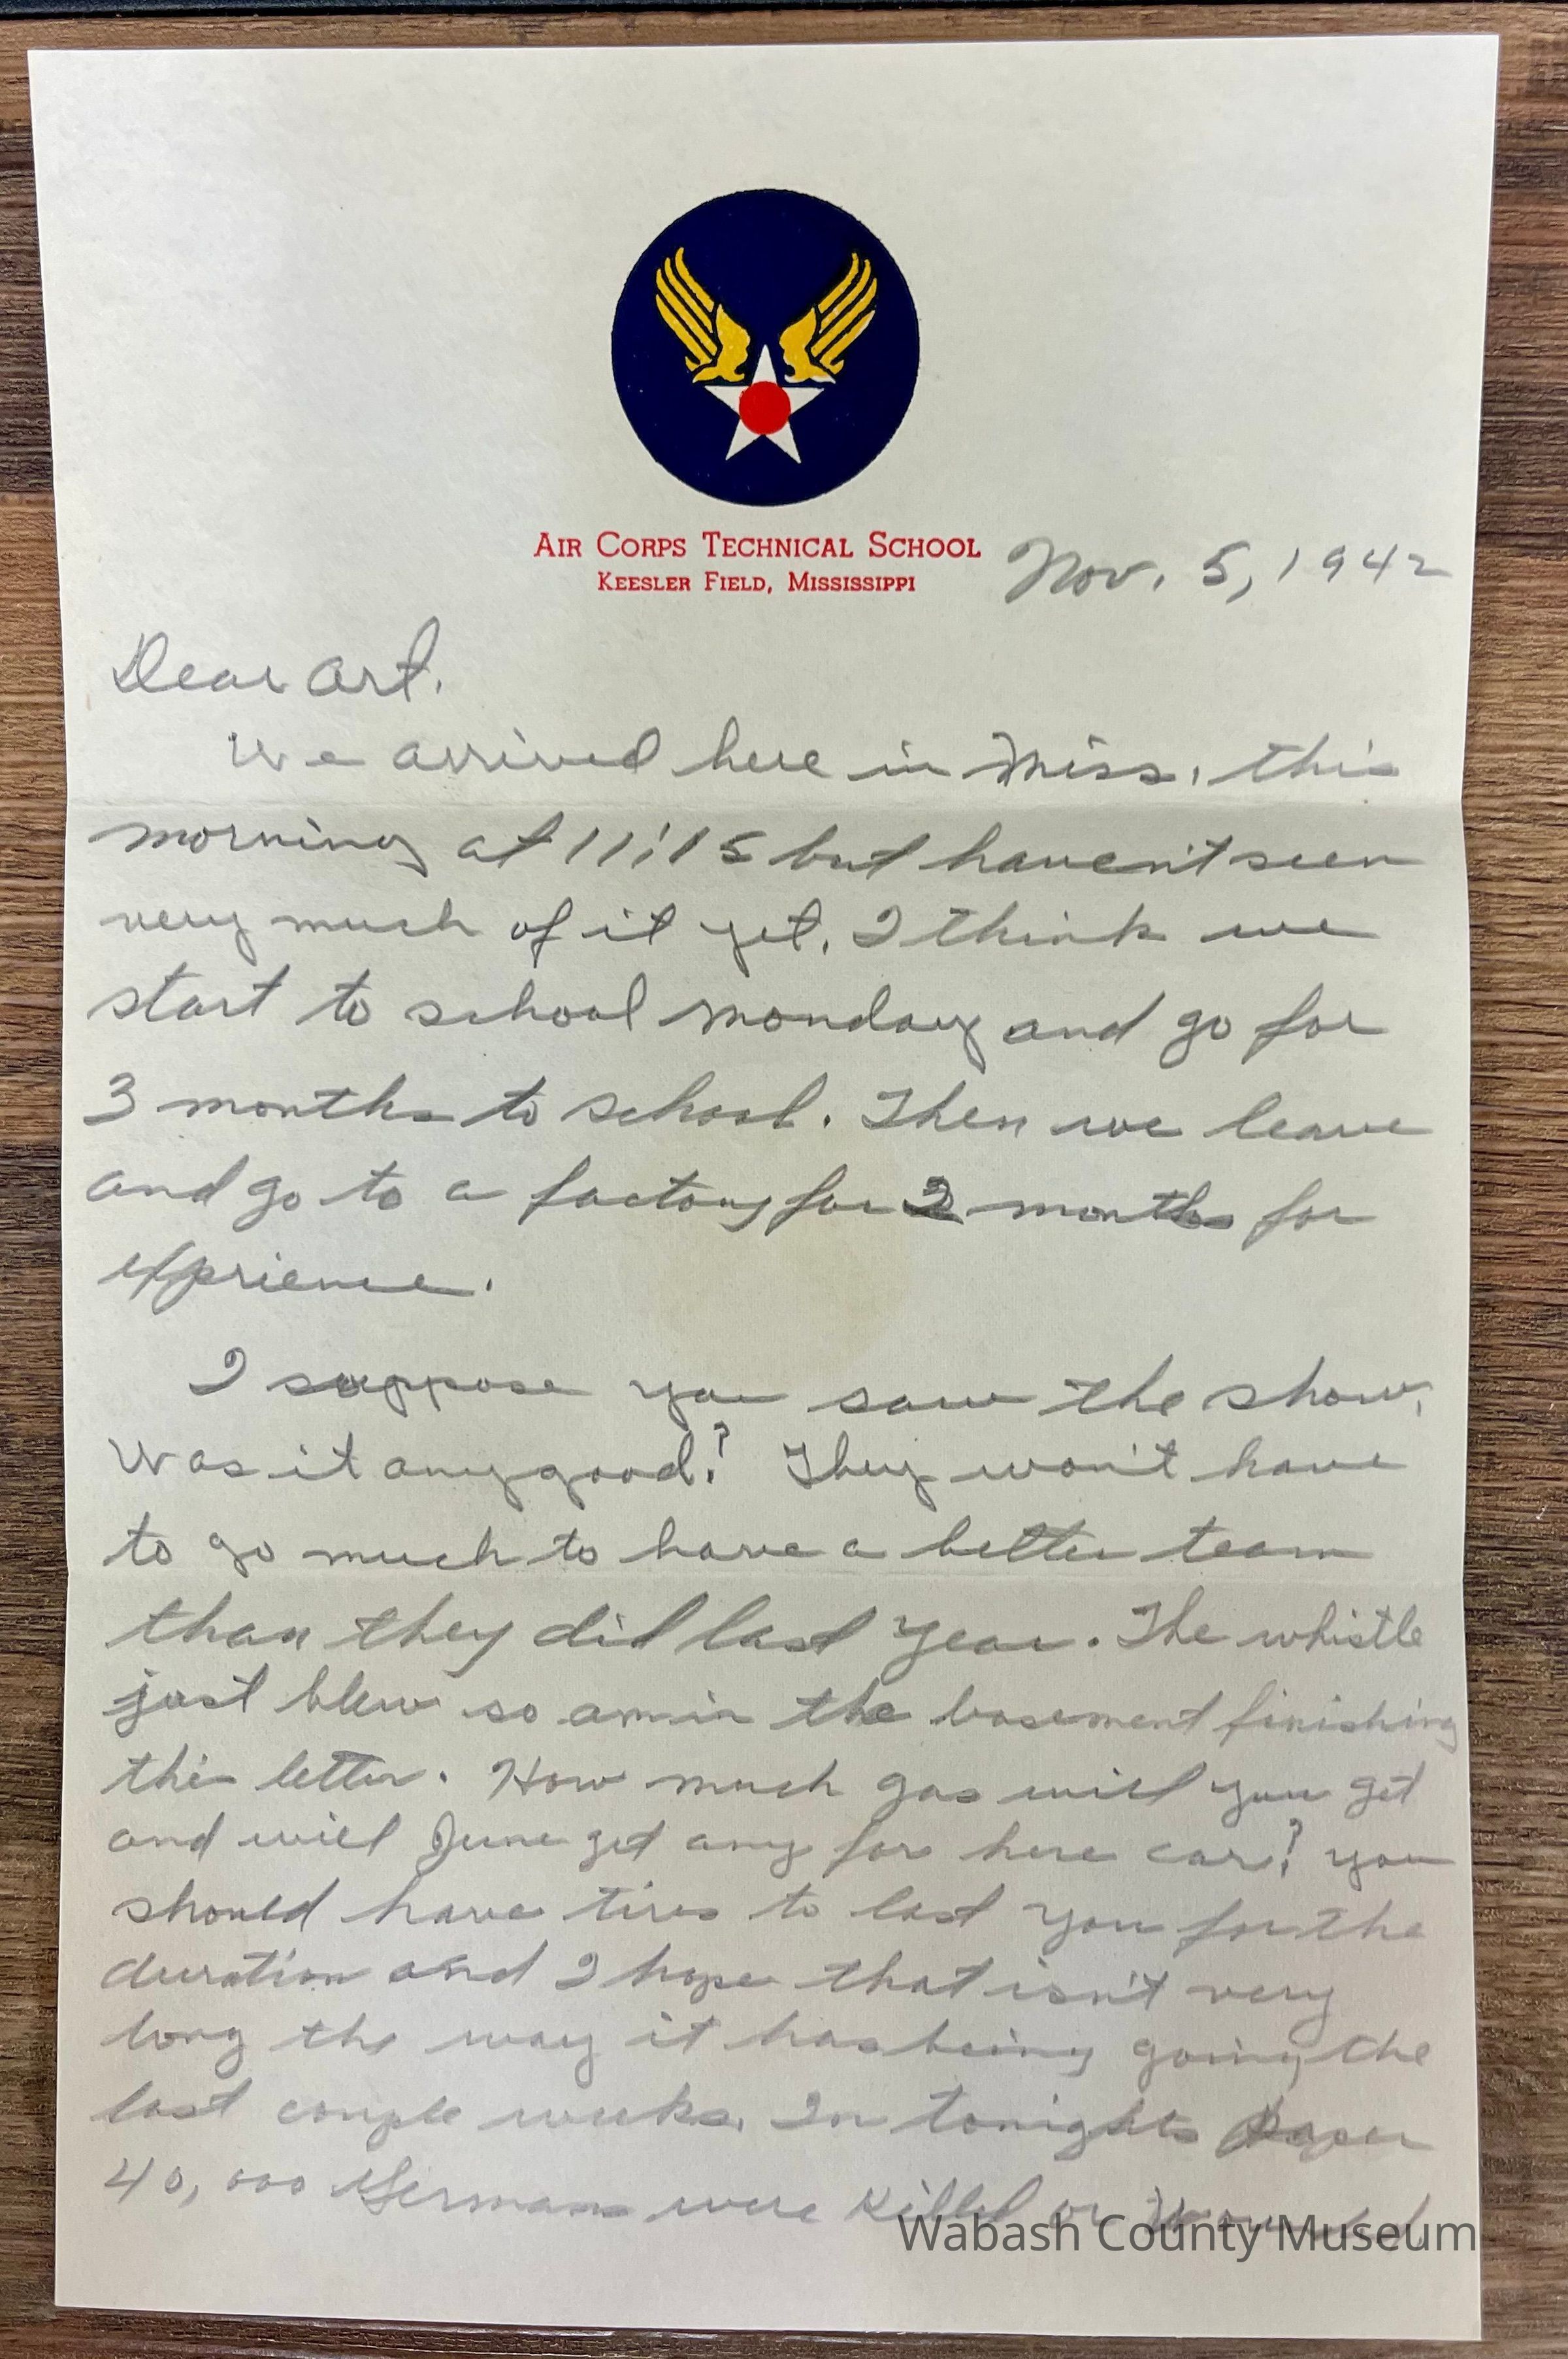 AIR CORPS TECHNICAL SCHOOL
KEESLER FIELD, MISSISSIPPI
Nov. 5, 1942
Dear Art.
We arrived here in Miss. this
morning at 11:15 but haven't seen
very much of it yet. I think we
start to school Monday and go for
3 months to school. Then we leave
and go to a factory for 2 months for
exprience.
I suppose you saw the show.
Was it any good? They won't have
to go much to have a better team
than they did last year. The whistle
just blew so am in the basement finishing
this letter. How much gas will you get
and will June get any for here car? you
should have tires to last you for the
duration and I hope that isn't very
long the way it has being going the
last couple weeks. In tonights paper
40,000 Germans were killed or Wounded
Wabash County Museum